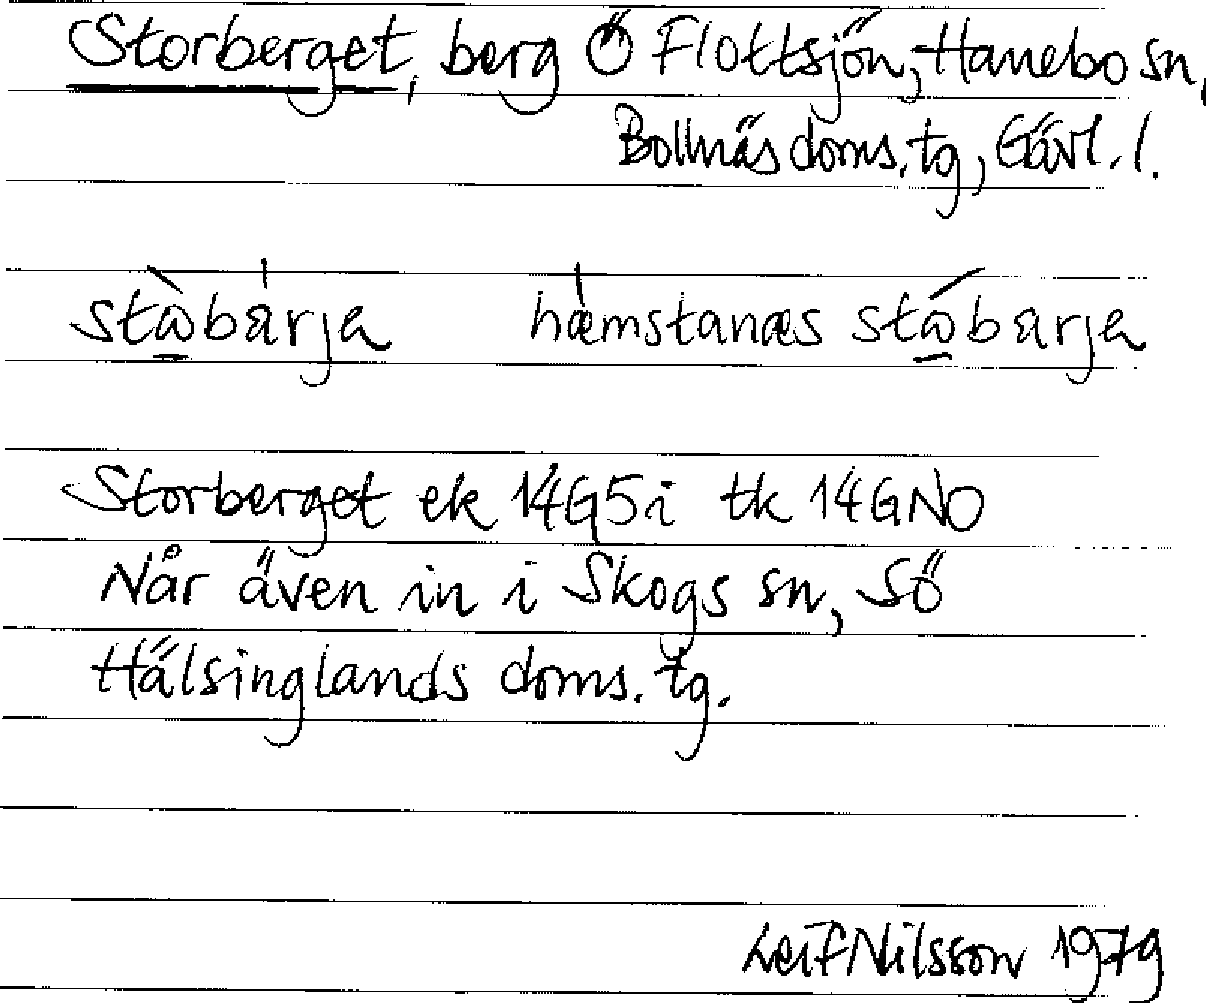 Storberget, berg Ö Flottsjön, Hanebo sn,
Bollnäs doms. tg, Gävl. l.
stὼ̲bárja hæ̍mstanæs stώ̲barja
Storberget ek 14G5i tk 14GNO
Når även in i Skogs sn, Sö
Hälsinglands doms. tg.
Leif Nilsson 1979